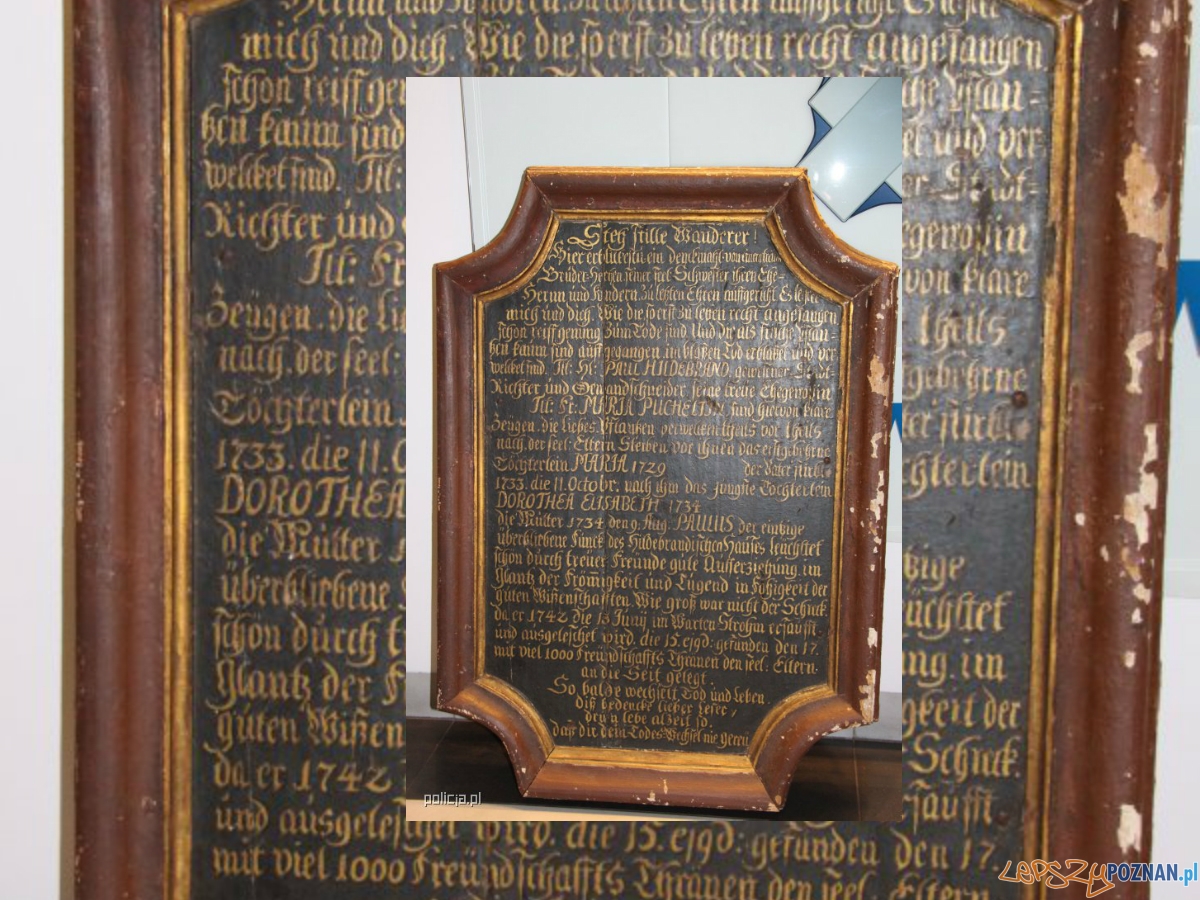 Steh stille Wanderer!
Hier erblickestu ein denckmahl von
Bruder Hertzen seel Schwester ihren Ehe-
Herrn und Kindern. Zu letzten Ehren auffgericht. Es lehret
mich und dich. Wie die so erst zu leben recht angefangen
schon reiff genung zum Tode sind Und die als frische Pflan-
tzen kaum sind auff gegangen in blaßen Tod erblaßet und ver
welcket sind. Tit: Hl: PAUL HILDEBRAND, gewesener Stadt-
Richter und Gewandschneider, seine treue Ehegenoßin
Tit: Fr. MARIA PUCHELTIN, sind hievon klare
Zeugen. die liebes Pflantzen verwelcken theils vor theils
nach. der seel: Eltern Sterben vor ihnen das erstgebohrne
Töchterlein MARIA 1729 der Vater stirbt
1733. die 11. Octobr: nach ihm das jüngste Töchterlein
DOROTHEA ELISABETH 1734
die Mutter 1734 den 9. Aug. PAULUS der eintzige
überbliebene Funck des Hildebrandischen Hauses leuchtet
schön durch treuer Freunde gute Aufferziehung. im
Glantz der Frömigkeit und Tugend in Fähigkeit der
guten Wißenschafften. Wie groß war nicht der Schmertz
da er 1742 die 13 Juny im Warten Strohm ersäufft
und ausgeleschet wird. die 15. ejqd: gefunden den 17.
mit viel 1000 Freundschaffts Thränen den seel: Eltern.
an die Seit gelegt.
So balde wechselt Tod und Leben.
Diß bedencke lieber Leser,
denn lebe alzeit so.
daß dir dein Todes Wechsel nie gereu
policja.pl
LEPSZYPOZNAN.pl